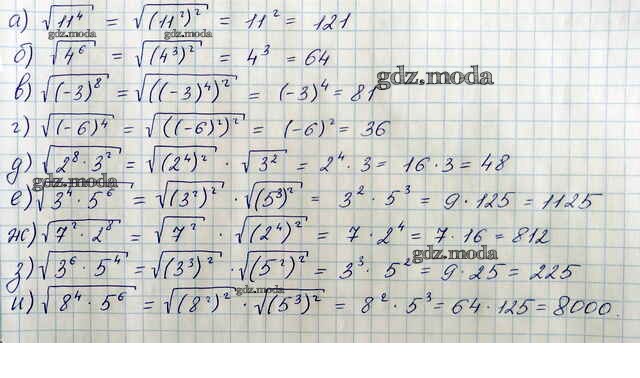 а) √11⁴ = √(11²)² = 11² = 121
gdz.moda gdz.moda
б) √4⁶ = √(4³)² = 4³ = 64
gdz.moda
в) √(-3)⁸ = √((-3)⁴)² = (-3)⁴ = 81
г) √(-6)⁴ = √((-6)²)² = (-6)² = 36
д) √2⁸ · 3² = √(2⁴)² · √3² = 2⁴ · 3 = 16 · 3 = 48
gdz.moda
е) √3⁴ · 5⁶ = √(3²)² · √(5³)² = 3² · 5³ = 9 · 125 = 1125
ж) √7² · 2⁸ = √7² · √(2⁴)² = 7 · 2⁴ = 7 · 16 = 812
gdz.moda gdz.moda
з) √3⁶ · 5⁴ = √(3³)² · √(5²)² = 3³ · 5² = 9 · 25 = 225
gdz.moda
и) √8⁴ · 5⁶ = √(8²)² · √(5³)² = 8² · 5³ = 64 · 125 = 8000.